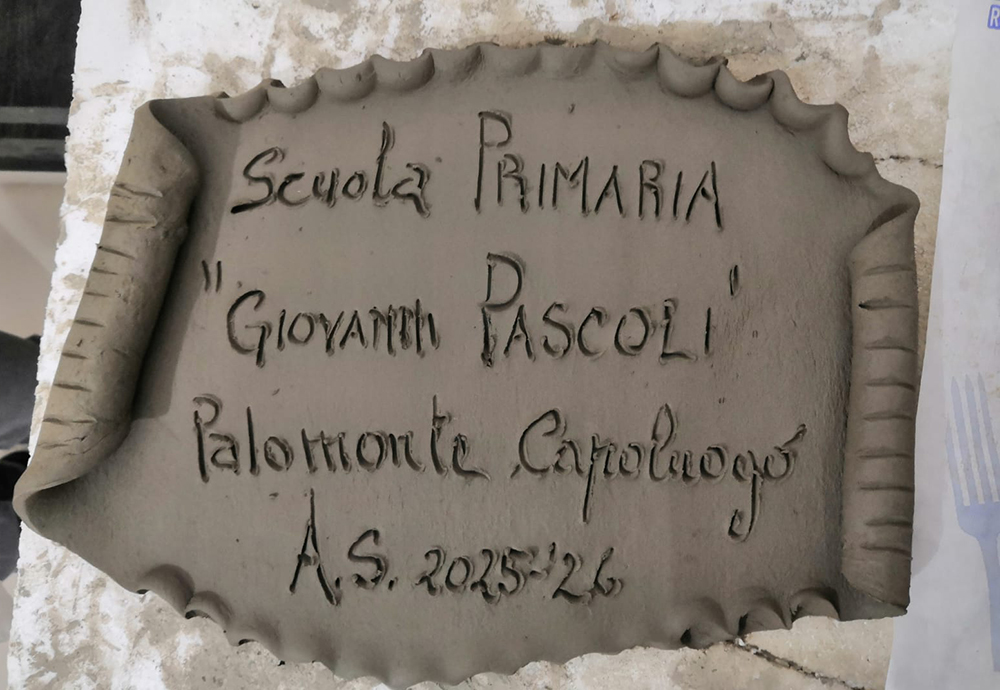 Scuola PRIMARIA
"GIOVANNI PASCOLI"
Palomonte Capoluogo
A.S. 2025-'26
R